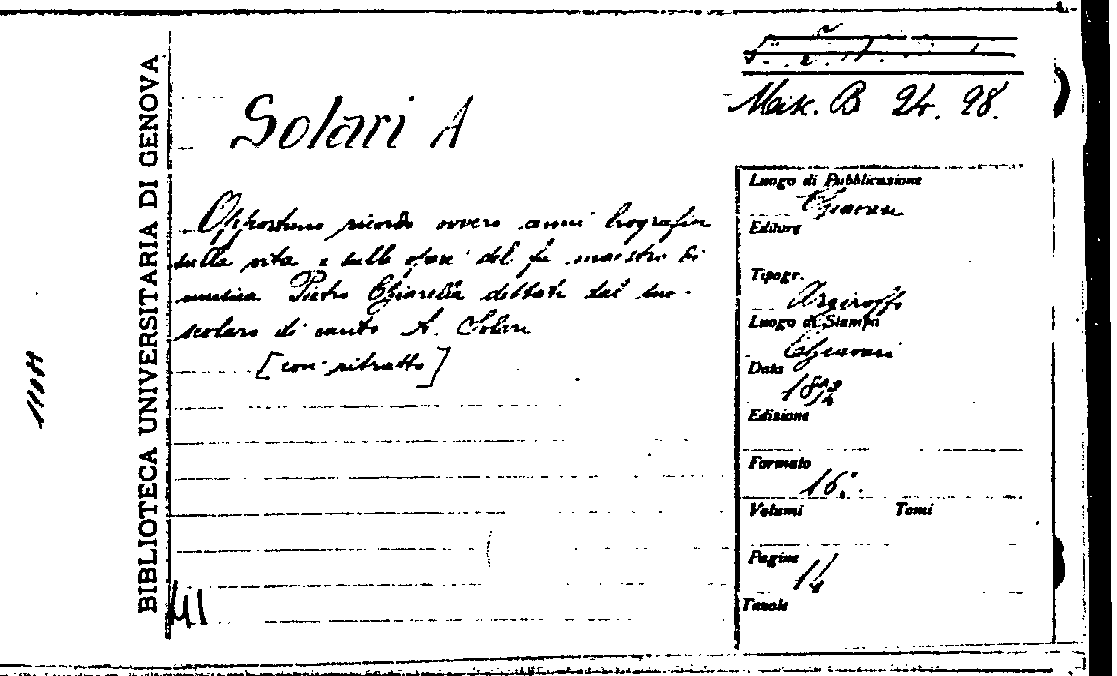 BIBLIOTECA UNIVERSITARIA DI GENOVA
Misc. B 24. 98.
Solari A
Opportuno ricordo ovvero cenni biografici
sulla vita e sulle opere del fu maestro di
musica Pietro Chiarella dettati dal suo
scolaro di canto A. Solari
[con ritratto]
Luogo di Pubblicazione
Chiavari
Editore
Tipogr.
Argiroffo
Luogo di Stampa
Chiavari
Data
Edizione
Formato
16°.
Volumi Tomi
Pagine
14
Tavole